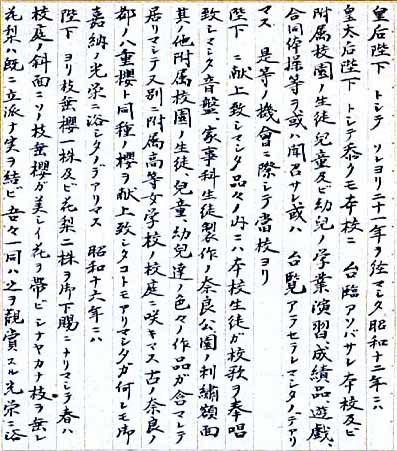 皇后陛下　トシテ　ソレヨリ二十一年ヲ経マシタ昭和十二年ニハ
皇太后陛下　トシテ忝クモ本校ニ　台臨アソバサレ本校及ビ
附属校園ノ生徒、兒童及ビ幼兒ノ学業演習成績品、遊戯、
合同体操等ヲ或ハ聞召サレ或ハ　台覧アラセラレマシタノデアリ
マス　是等ノ機會ニ際シテ當校ヨリ
陛下　ニ献上致シマシタ品々ノ内ニハ本校生徒ガ校歌ヲ奉唱
致シマシタ音盤、家事科生徒製作ノ奈良公園ノ刺繍額面
其ノ他附属校園ノ生徒、兒童、幼兒達ノ色々ノ作品ガ含マレテ
居リマシテ又別ニ附属高等女学校ノ校庭ニ咲キマス古ノ奈良ノ
都ノ八重櫻ト同種ノ櫻ヲ献上致シタコトモアリマシタガ何レモ御
嘉納ノ光栄ニ浴シタノデアリマス　昭和十六年ニハ
陛下　ヨリ枝垂櫻一株及ビ花梨二株ヲ御下賜ニナリマシテ春ハ
校庭ノ斜面ニソノ枝垂櫻ガ美シイ花ヲ帯ビシナヤカナ枝ヲ垂レ
花梨ハ既ニ立派ナ実ヲ結ビ吾々一同ハ之ヲ観賞スル光栄ニ浴